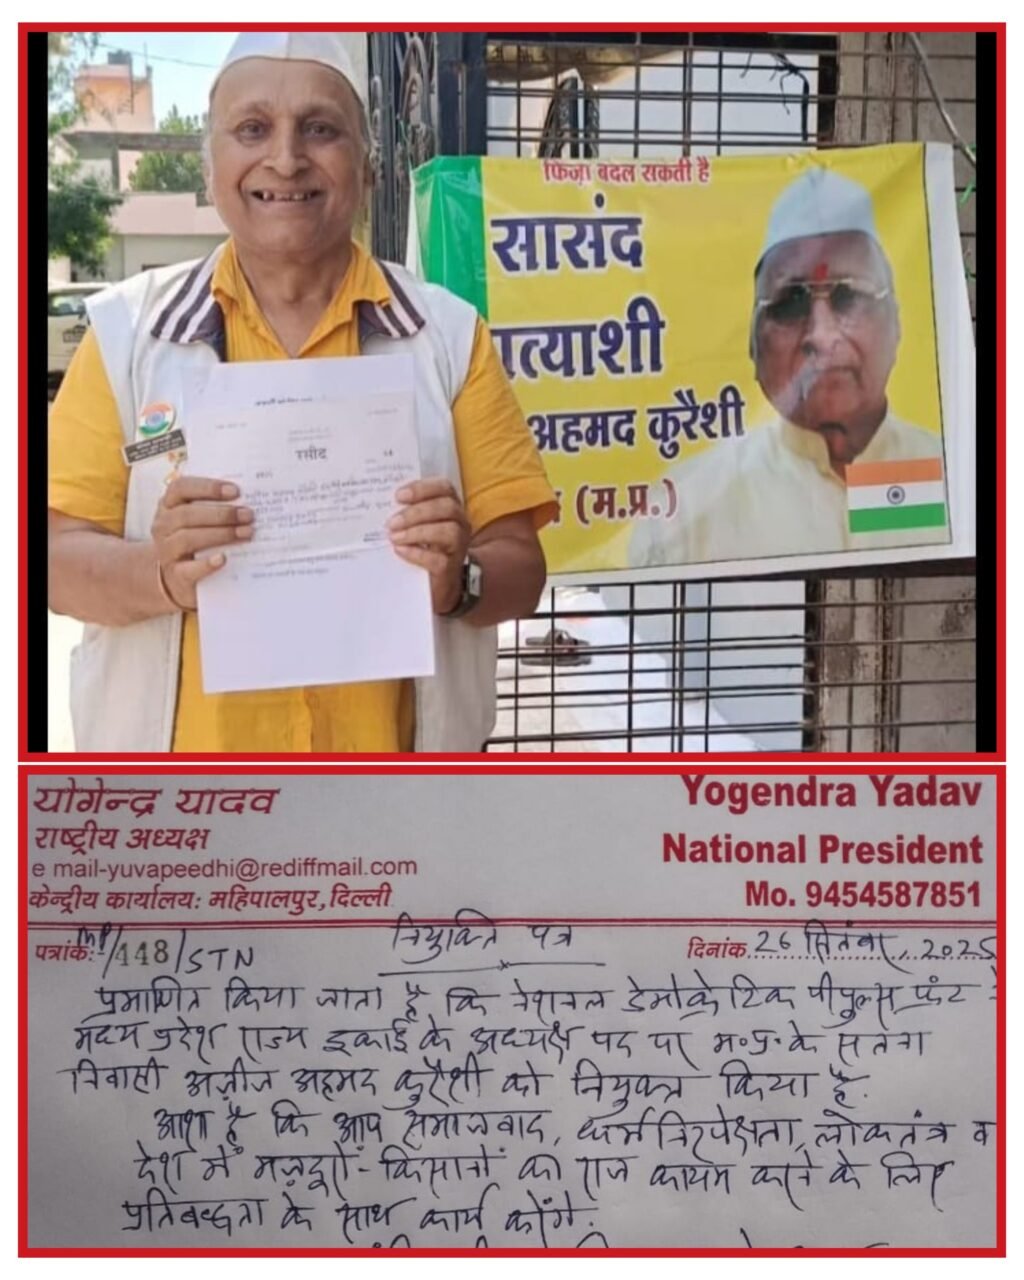 फिज़ा बदल सकती है
सासंद
प्रत्याशी
अहमद कुरैशी
(म.प्र.)
रसीद
योगेन्द्र यादव
राष्ट्रीय अध्यक्ष
e mail-yuvapeedhi@rediffmail.com
केन्द्रीय कार्यालय: महिपालपुर, दिल्ली
Yogendra Yadav
National President
Mo. 9454587851
पत्रांक:- MP/448/STN
नियुक्ति पत्र
दिनांक 26 सितंबर, 2025
प्रमाणित किया जाता है कि नेशनल डेमोक्रेटिक पीपुल्स फ्रंट
मध्य प्रदेश राज्य इकाई के अध्यक्ष पद पर म॰प्र॰ के सतना
निवासी अज़ीज अहमद कुरैशी को नियुक्त किया है.
आशा है कि आप समाजवाद, धर्मनिरपेक्षता, लोकतंत्र व
देश में मज़दूरों-किसानों का राज कायम करने के लिए
प्रतिबद्धता के साथ कार्य करेंगे.